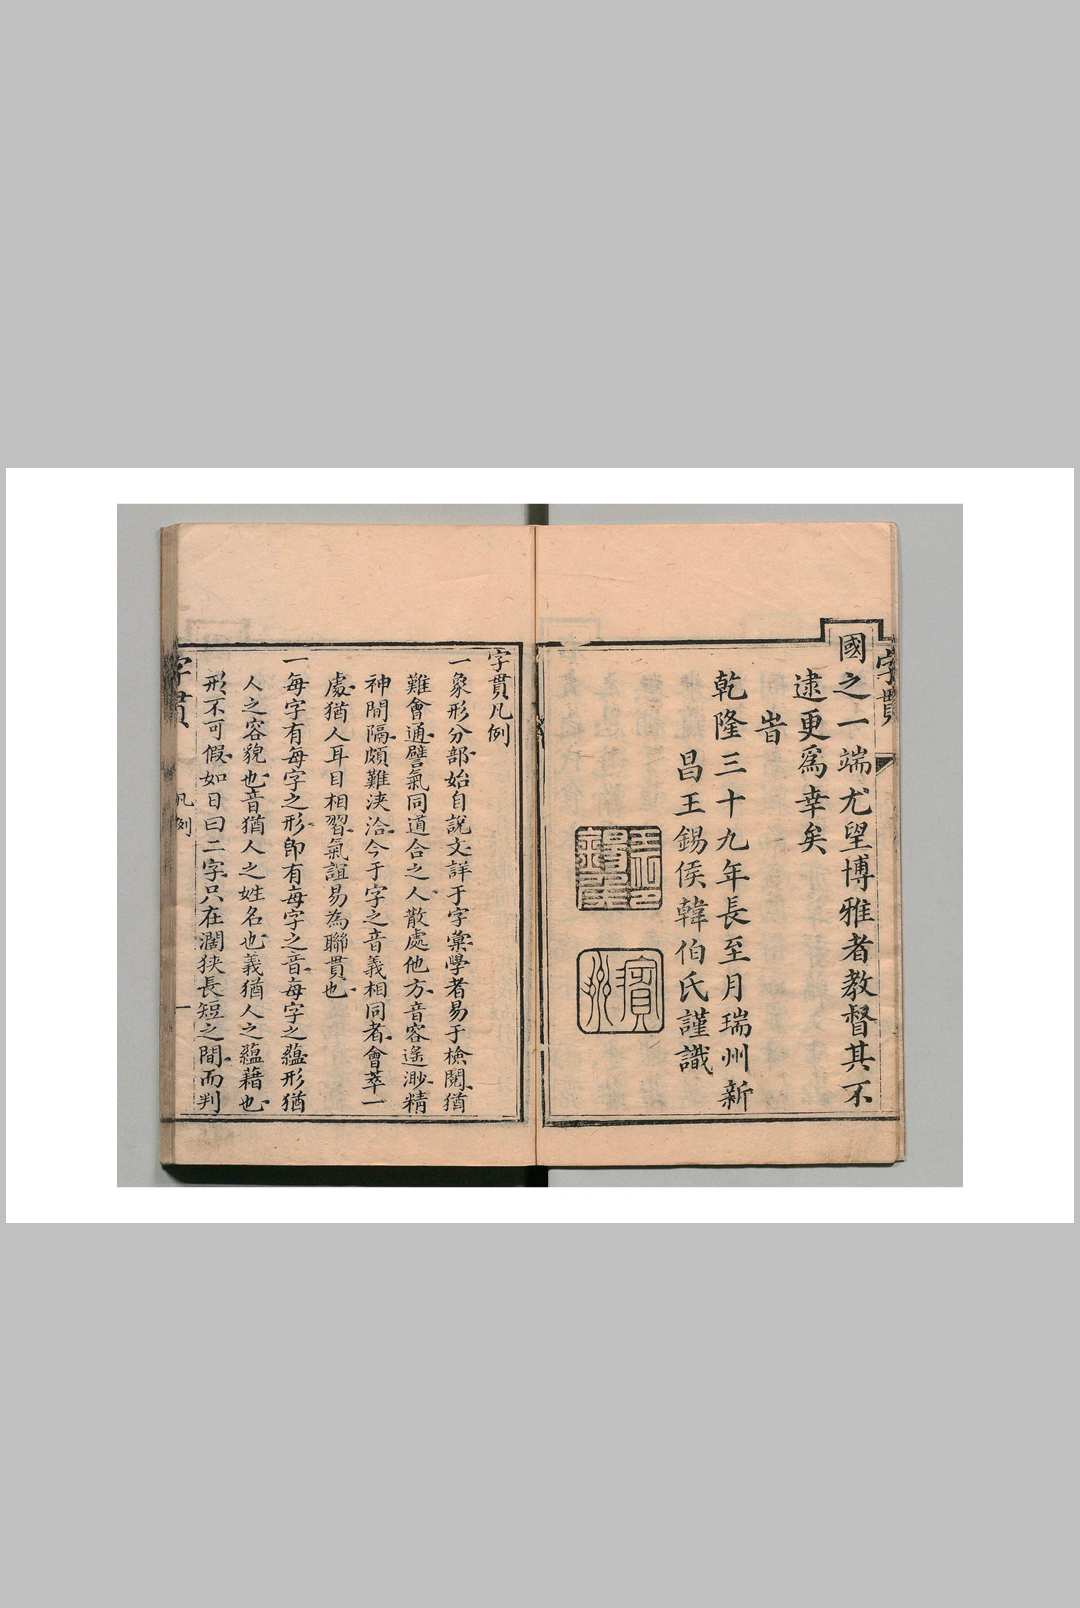 國之一端尤望博雅者教督其不
逮更爲幸矣
旹
乾隆三十九年長至月瑞州新
昌王錫侯韓伯氏謹識
字貫
字貫凡例
一象形分部始自說文詳于字彙學者易于檢閱猶
難會通譬氣同道合之人散處他方音容遙渺精
神間隔頗難浹洽今于字之音義相同者會萃一
處猶人耳目相習氣誼易為聯貫也
一每字有每字之形卽有每字之音每字之蘊形猶
人之容貌也音猶人之姓名也義猶人之蘊藉也
形不可假如日曰二字只在濶狹長短之間而判
字貫
凡例
一